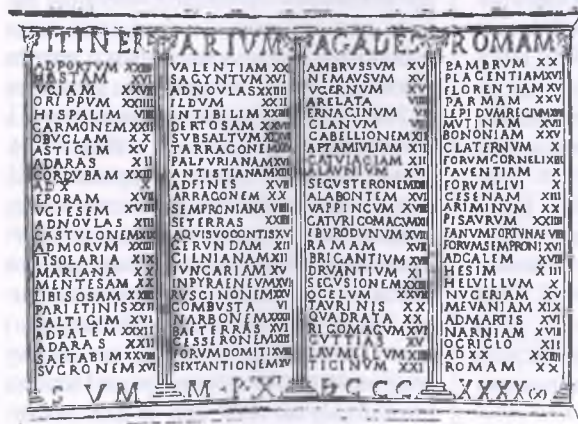 ITINERARIVM A GADES ROMAM
AD PORTVM XXIIII
HASTAM XVI
VGIAM XXVII
ORIPPVM XXIIII
HISPALIM VIIII
CARMONEM XXII
OBVCLAM XX
ASTIGIM XV
AD ARAS XII
CORDVBAM XXIII
AD X X
EPORAM XVII
VCIESEM XVIII
AD NOVLAS XIII
CASTVLONEM
AD MORVM XXIIII
II SOLARIA XIX
MARIANA XX
MENTESAM XX
LIBISOSAM XXVIII
PARIETINIS XXII
SALTIGIM XVI
AD PALEM XXXII
AD ARAS XXII
SAETABIM XXVIII
SVCRONEM XVI
VALENTIAM XX
SAGYNTVM XVI
AD NOVLAS XXIIII
ILDVM XXII
INTIBILIM XXIIII
DERTOSAM XXVII
SVBSALTVM
TARRACONEM
PALFVRIANAM XVI
ANTISTIANAM XIII
AD FINES XVII
ARRAGONEM XX
SEMPRONIANA VIIII
SETERRAS XXIIII
AQVIS VOCONTIS XV
GERVNDAM XII
CILNIANAM XII
IVNCARIAM XV
IN PYRAENEVM XVI
RVSCINONEM XXV
COMBVSTA VI
NARBONEM XXXII
BAETERRAS XVI
CESSERONEM XII
FORVM DOMITI XVIII
SEXTANTIONEM XV
AMBRVSSVM XV
NEMAVSVM XV
VGERNVM XV
ARELATA VIIII
ERNAGINVM VI
GLANVM VIII
CABELLIONEM XII
APTAM IVLIAM XII
CATVIACIAM XII
ALAVNIVM XVI
SEGVSTERONEM XXIIII
ALABONTEM XVI
VAPPINCVM XVIII
CATVRICOMAGVM
EBVRODVNVM XVIII
RAMAM XVII
BRIGANTIVM XVIII
DRVANTIVM XI
SEGVSIONEM XXIIII
OCELVM XXVII
TAVRINIS XX
QVADRATA XX
RIGOMAGVM XVI
CVTTIAS XV
LAVMELLVM XIII
TICINVM XXI
BAMBRVM XX
PLACENTIAM XVI
FLORENTIAM XV
PARMAM XXV
LEPIDVM REGIVM
MVTINAM XVII
BONONIAM XXV
CLATERNVM X
FORVM CORNELI XIII
FAVENTIAM X
FORVM LIVI X
CESENAM XIII
ARIMINVM XX
PISAVRVM XXIIII
FANVM FORTVNAE VIII
FORVM SEMPRONI XVI
AD CALEM XVIII
HESIM XIIII
HELVILLVM X
NVCERIAM XV
MEVANIAM XIX
AD MARTIS XVI
NARNIAM XVIII
OCRICLO XII
AD XX XXIIII
ROMAM XX
SVM M·P·X CC XXXX